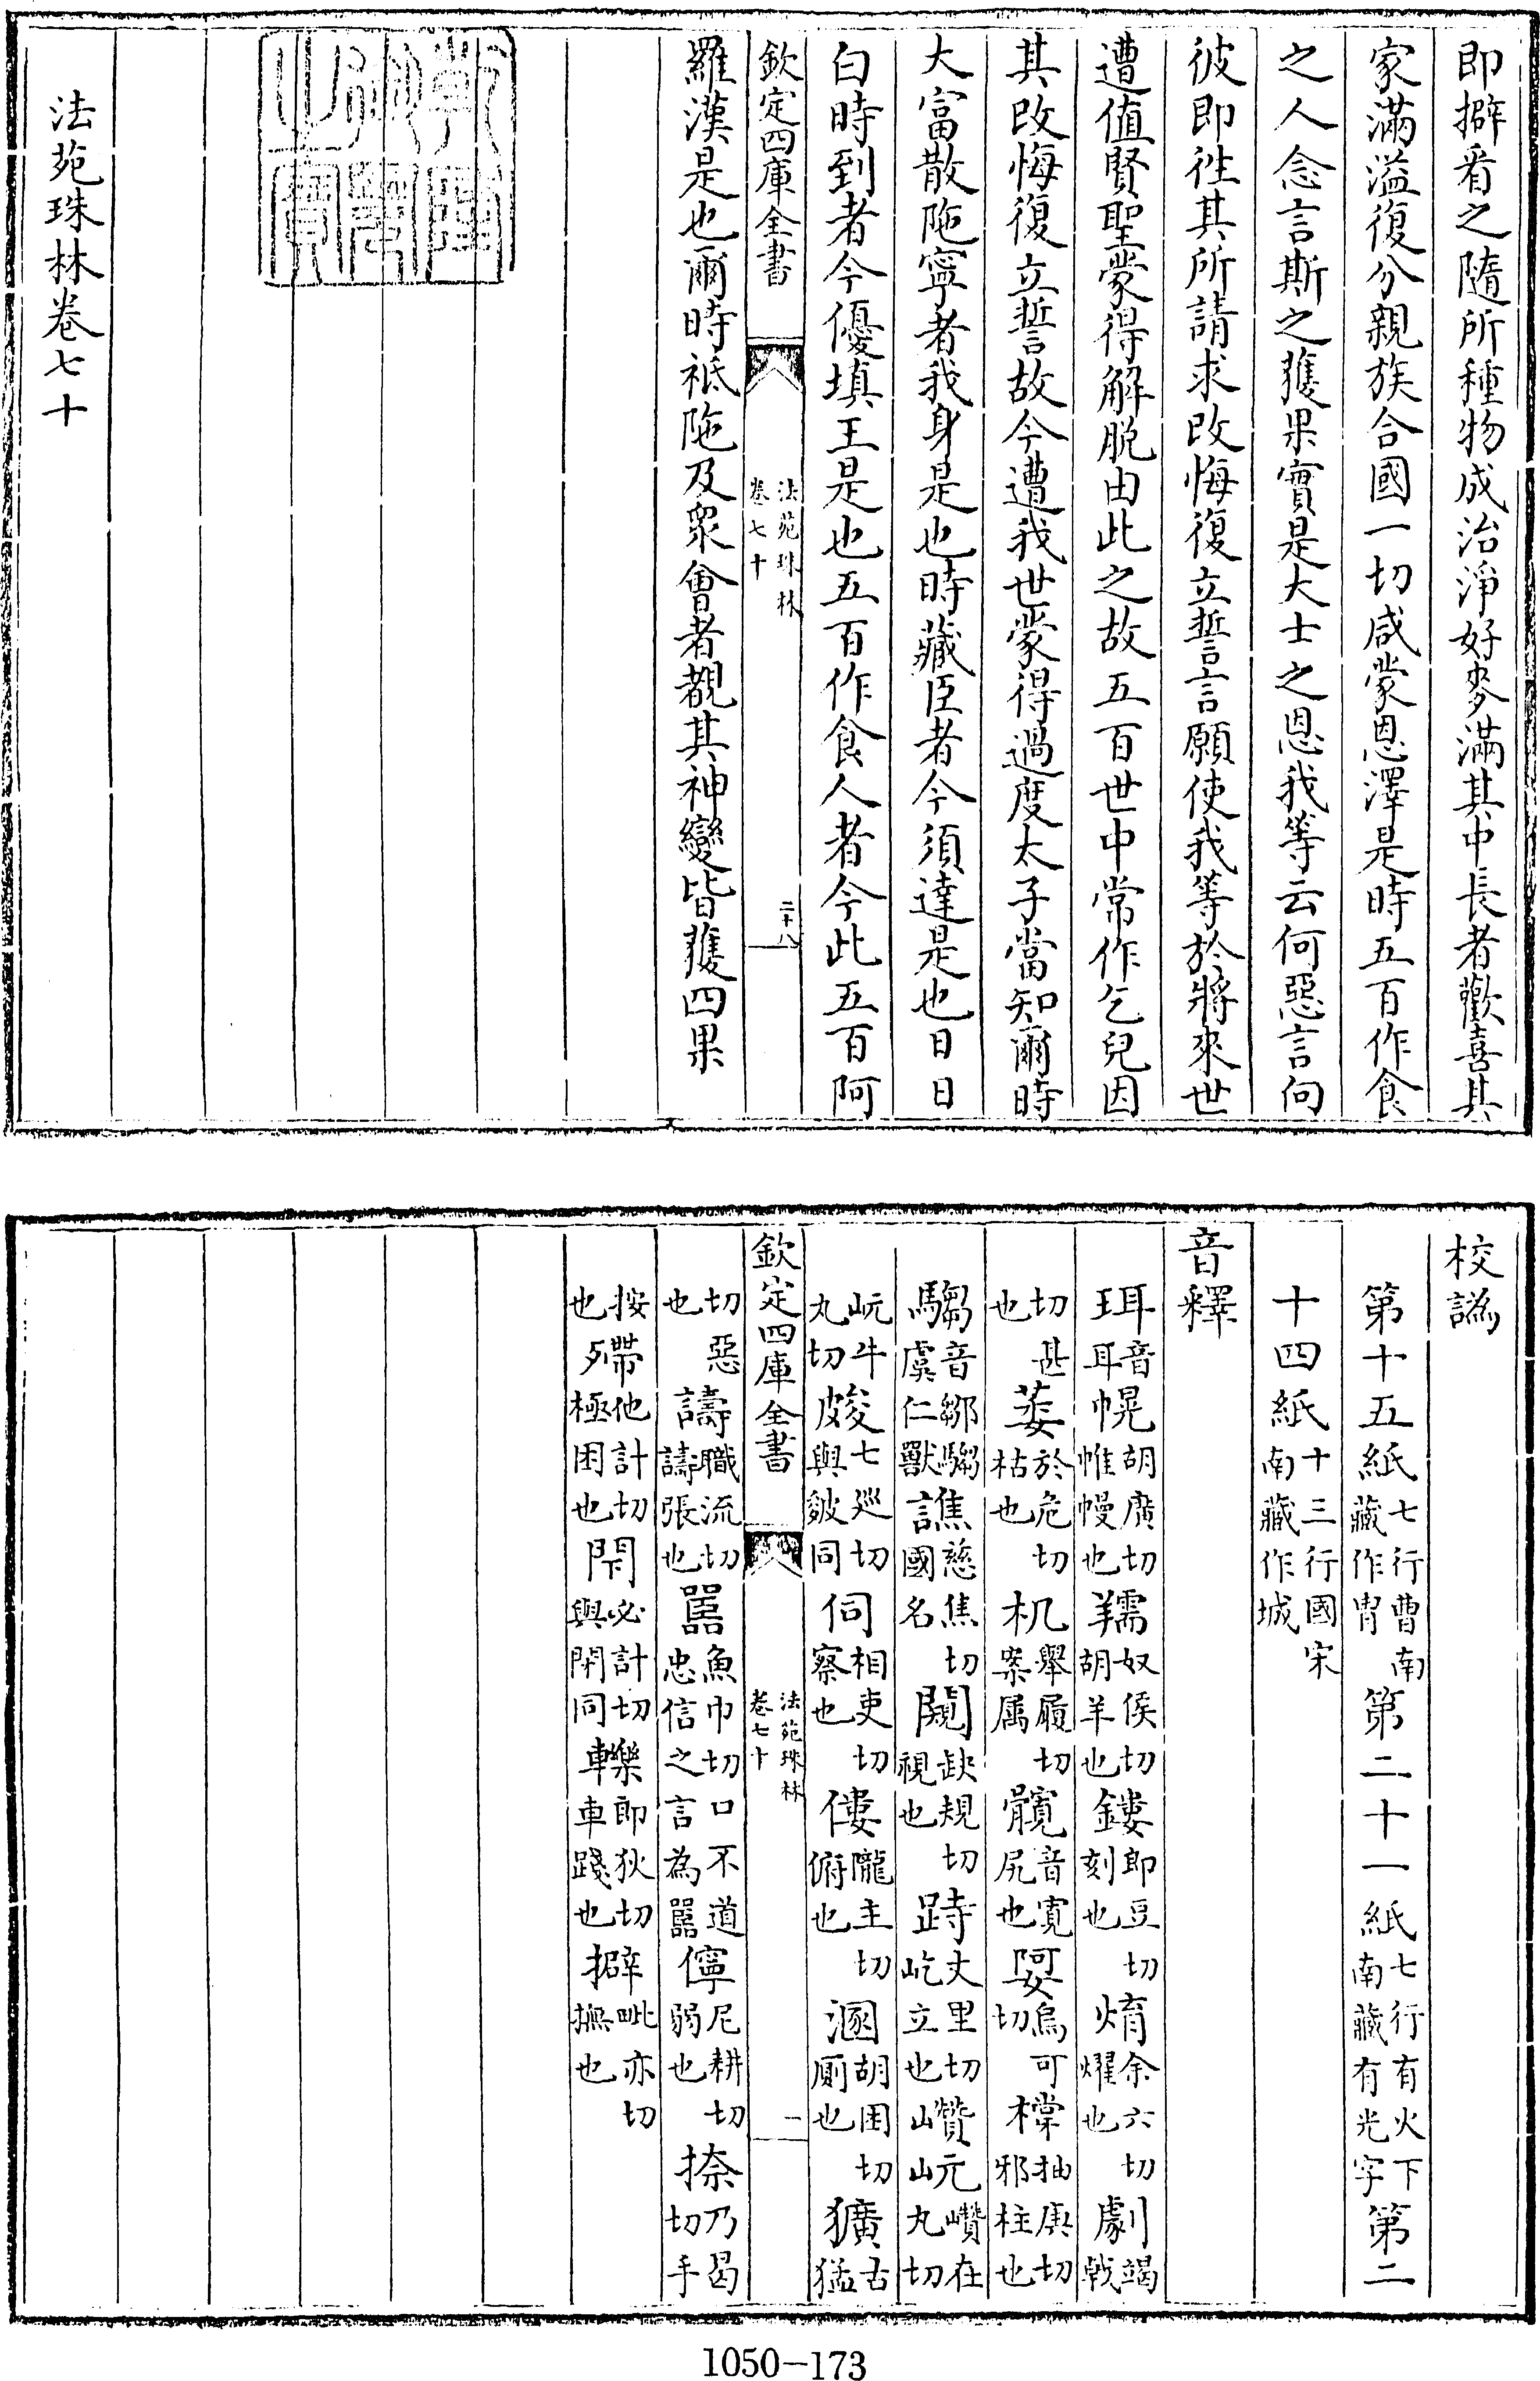 即擗看之隨所種物成治淨好麥滿其中長者歡喜其
家滿溢復分親族合國一切咸蒙恩澤是時五百作食
之人念言斯之獲果實是大士之恩我等云何惡言向
彼即往其所請求改悔復立誓言願使我等於將來世
遭值賢聖蒙得解脫由此之故五百世中常作乞兒因
其改悔復立誓故今遭我世蒙得過度太子當知爾時
大富散陁寧者我身是也時藏臣者今須達是也日日
白時到者今優填王是也五百作食人者今此五百阿
欽定四庫全書
法苑珠林
卷七十
二十八
羅漢是也爾時祇陁及衆會者覩其神變皆獲四果
法苑珠林卷七十
校譌
第十五紙七行曹南藏作冑第二十一紙七行有火下南藏有光字第二
十四紙十三行國宋南藏作城
音釋
珥音耳幌胡廣切帷幔也羺奴侯切胡羊也鏤郎豆切刻也焴余六切燿也劇竭戟
切甚也萎於危切枯也机舉履切案属髖音寬尻也㛿烏可切樘抽庚切邪柱也
騶音鄒騶虞仁獸譙慈焦切國名闚缺規切視也跱丈里切屹立也巑岏巑在丸切
岏牛丸切皴七巡切與皴同伺相吏切察也僂隴主切俯也溷胡困切厠也獷古猛
欽定四庫全書
法苑珠林
卷七十
一
切惡也譸職流切譸張也嚚魚巾切口不道忠信之言為嚚儜尼耕切弱也捺乃曷切手
按也殢他計切極困也閇必計切與閉同轢郎狄切車踐也擗毗亦切撫也
1050-173